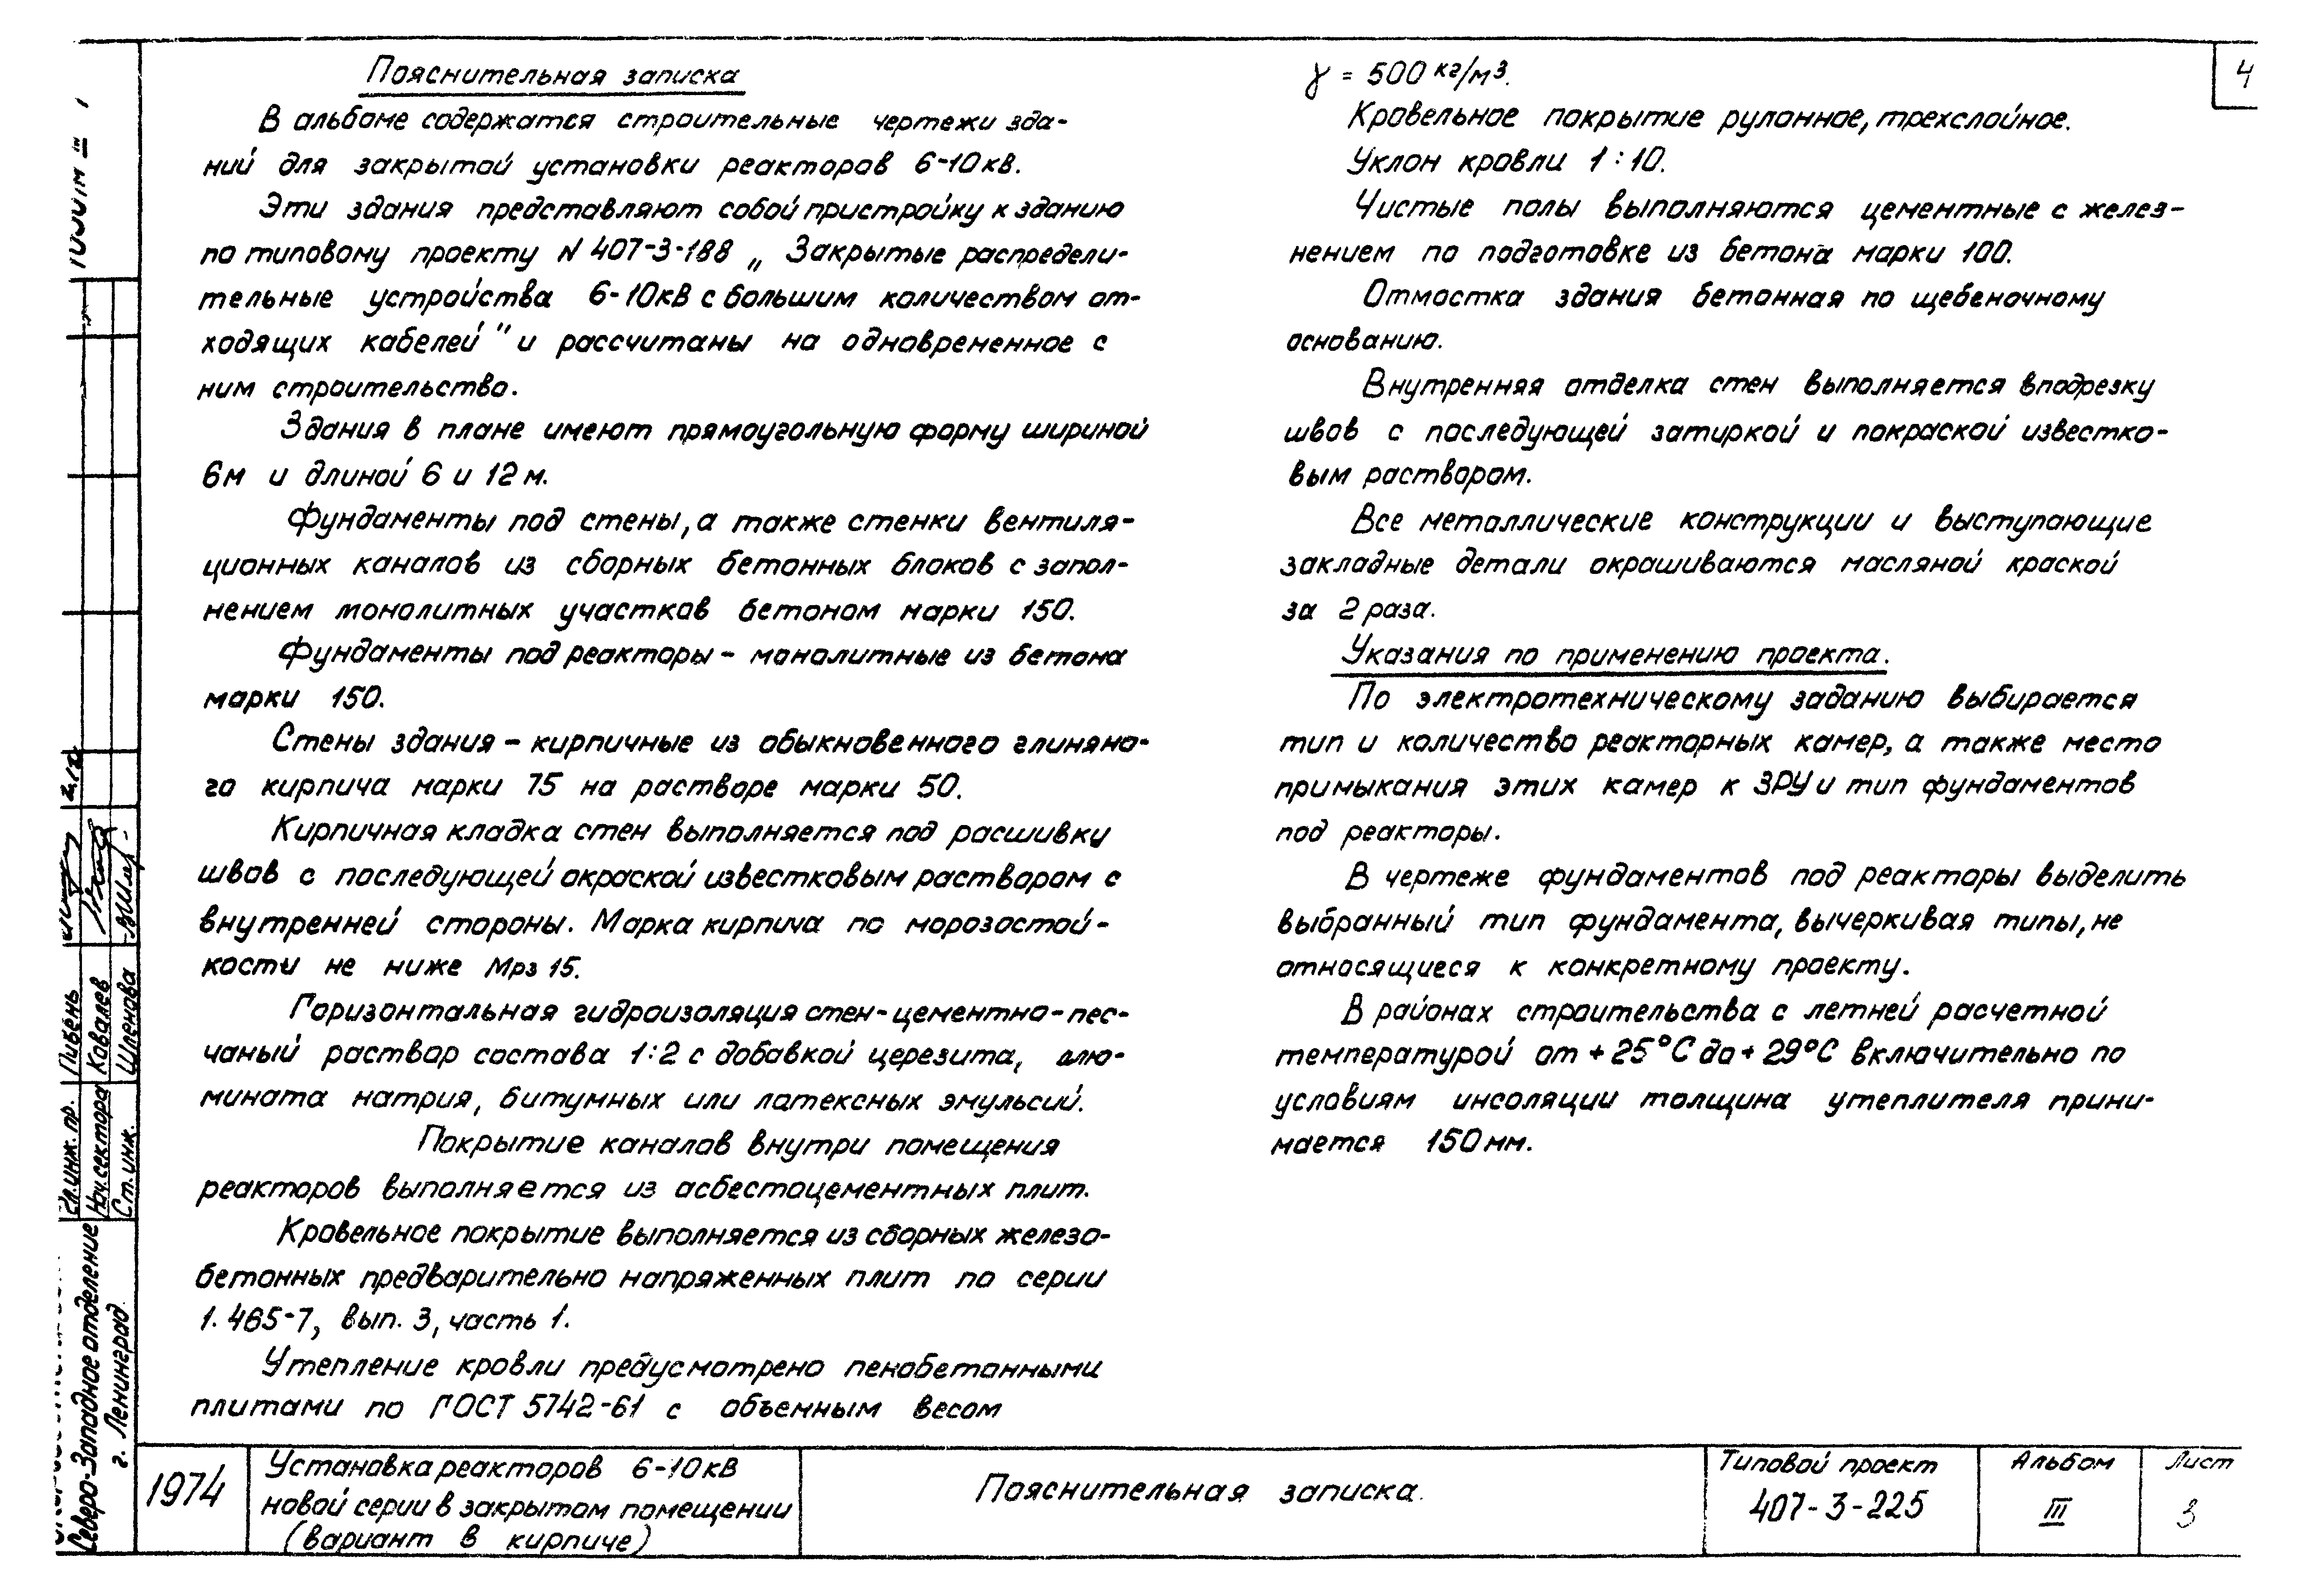 Пояснительная записка
В альбоме содержатся строительные чертежи зда-
ний для закрытой установки реакторов 6-10кв.
Эти здания представляют собой пристройку к зданию
по типовому проекту N 407-3-188 „Закрытые распредели-
тельные устройства 6-10кВ с большим количеством от-
ходящих кабелей" и рассчитаны на одновременное с
ним строительство.
Здания в плане имеют прямоугольную форму шириной
6м и длиной 6 и 12 м.
Фундаменты под стены, а также стенки вентиля-
ционных каналов из сборных бетонных блоков с запол-
нением монолитных участков бетоном марки 150.
Фундаменты под реакторы - монолитные из бетона
марки 150.
Стены здания - кирпичные из обыкновенного глиняно-
го кирпича марки 75 на растворе марки 50.
Кирпичная кладка стен выполняется под расшивку
швов с последующей окраской известковым раствором с
внутренней стороны. Марка кирпича по морозостой-
кости не ниже Мрз 15.
Горизонтальная гидроизоляция стен-цементно-пес-
чаный раствор состава 1:2 с добавкой церезита, алю-
мината натрия, битумных или латексных эмульсий.
Покрытие каналов внутри помещения
реакторов выполняется из асбестоцементных плит.
Кровельное покрытие выполняется из сборных железо-
бетонных предварительно напряженных плит по серии
1.465-7, вып. 3, часть 1.
Утепление кровли предусмотрено пенобетонными
плитами по ГОСТ 5742-61 с объемным весом
γ = 500 кг/м3.
Кровельное покрытие рулонное, трехслойное.
Уклон кровли 1:10.
Чистые полы выполняются цементные с желез-
нением по подготовке из бетона марки 100.
Отмостка здания бетонная по щебеночному
основанию.
Внутренняя отделка стен выполняется вподрезку
швов с последующей затиркой и покраской известко-
вым раствором.
Все металлические конструкции и выступающие
закладные детали окрашиваются масляной краской
за 2 раза.
Указания по применению проекта.
По электротехническому заданию выбирается
тип и количество реакторных камер, а также место
примыкания этих камер к ЗРУ и тип фундаментов
под реакторы.
В чертеже фундаментов под реакторы выделить
выбранный тип фундамента, вычеркивая типы, не
относящиеся к конкретному проекту.
В районах строительства с летней расчетной
температурой от +25°С до +29°С включительно по
условиям инсоляции толщина утеплителя прини-
мается 150мм.
4
Гл. инж. пр. Ливень
Нач. сектора Ковалев
Ст. инж. Шленова
Северо-Западное отделение
г. Ленинград.
1974
Установка реакторов 6-10кВ
новой серии в закрытом помещении
(вариант в кирпиче)
Пояснительная записка.
Типовой проект
407-3-225
Альбом
III
Лист
3